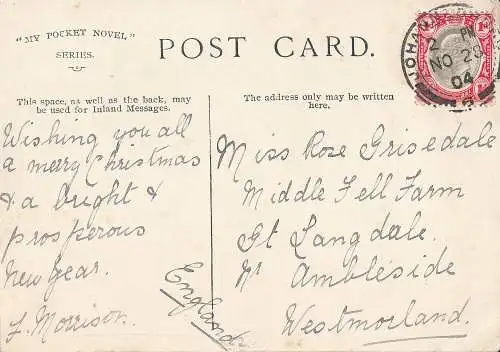 "MY POCKET NOVEL"
SERIES.
POST CARD.
This space, as well as the back, may
be used for Inland Messages.
The address only may be written
here.
Wishing you all
a merry Christmas
& a bright &
prosperous
New Year.
F. Morrison.
Miss Rose Grisedale
Middle Fell Farm
Gt Langdale.
Nr Ambleside
Westmorland.
England
JOHAN
2 PM
NO 28
04